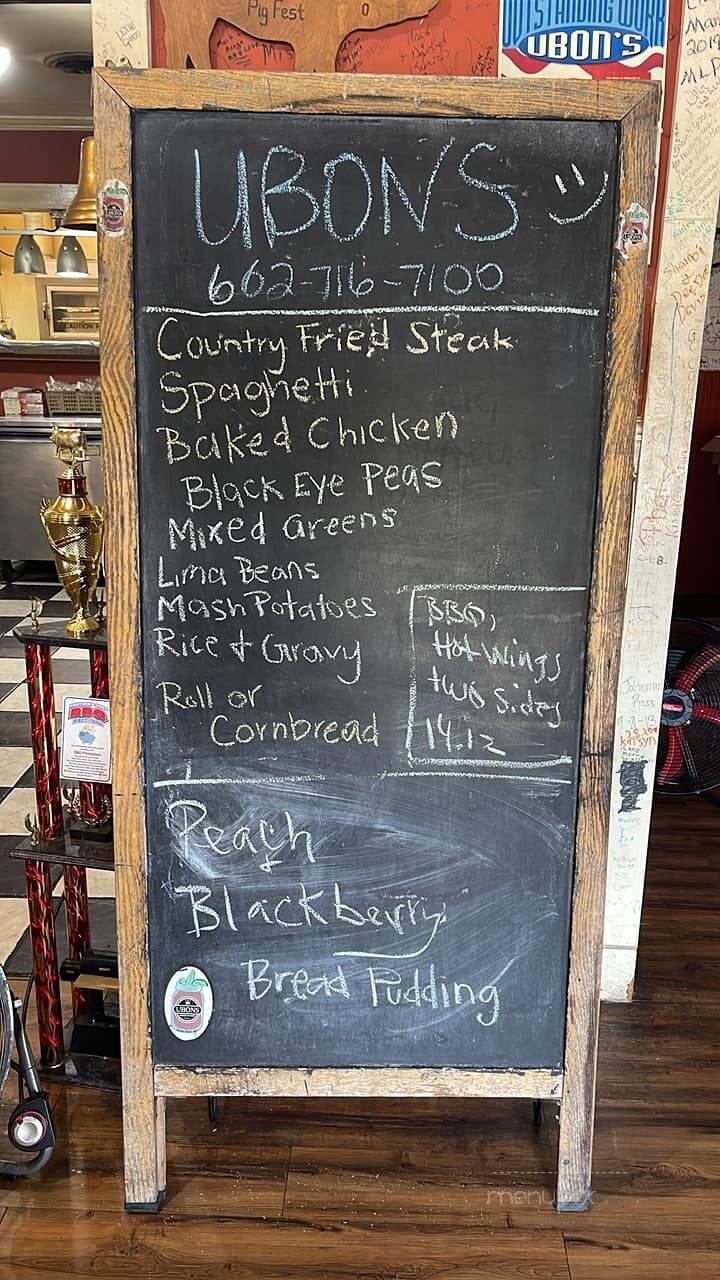 Pig Fest
OUTSTANDING WORK
UBON'S
UBON'S
662-716-7100
Country Fried Steak
Spaghetti
Baked Chicken
Black Eye Peas
Mixed Greens
Lima Beans
Mash Potatoes
Rice & Gravy
Roll or
Cornbread
BBQ,
Hot Wings
two Sides
14.12
Peach
Blackberry
Bread Pudding
UBONS
CAUTION
BBQ